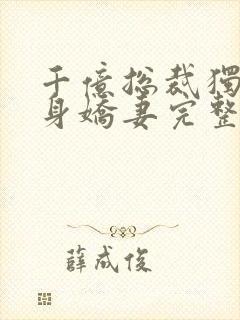 千億總裁獨
身嬌妻完整
薛成俊